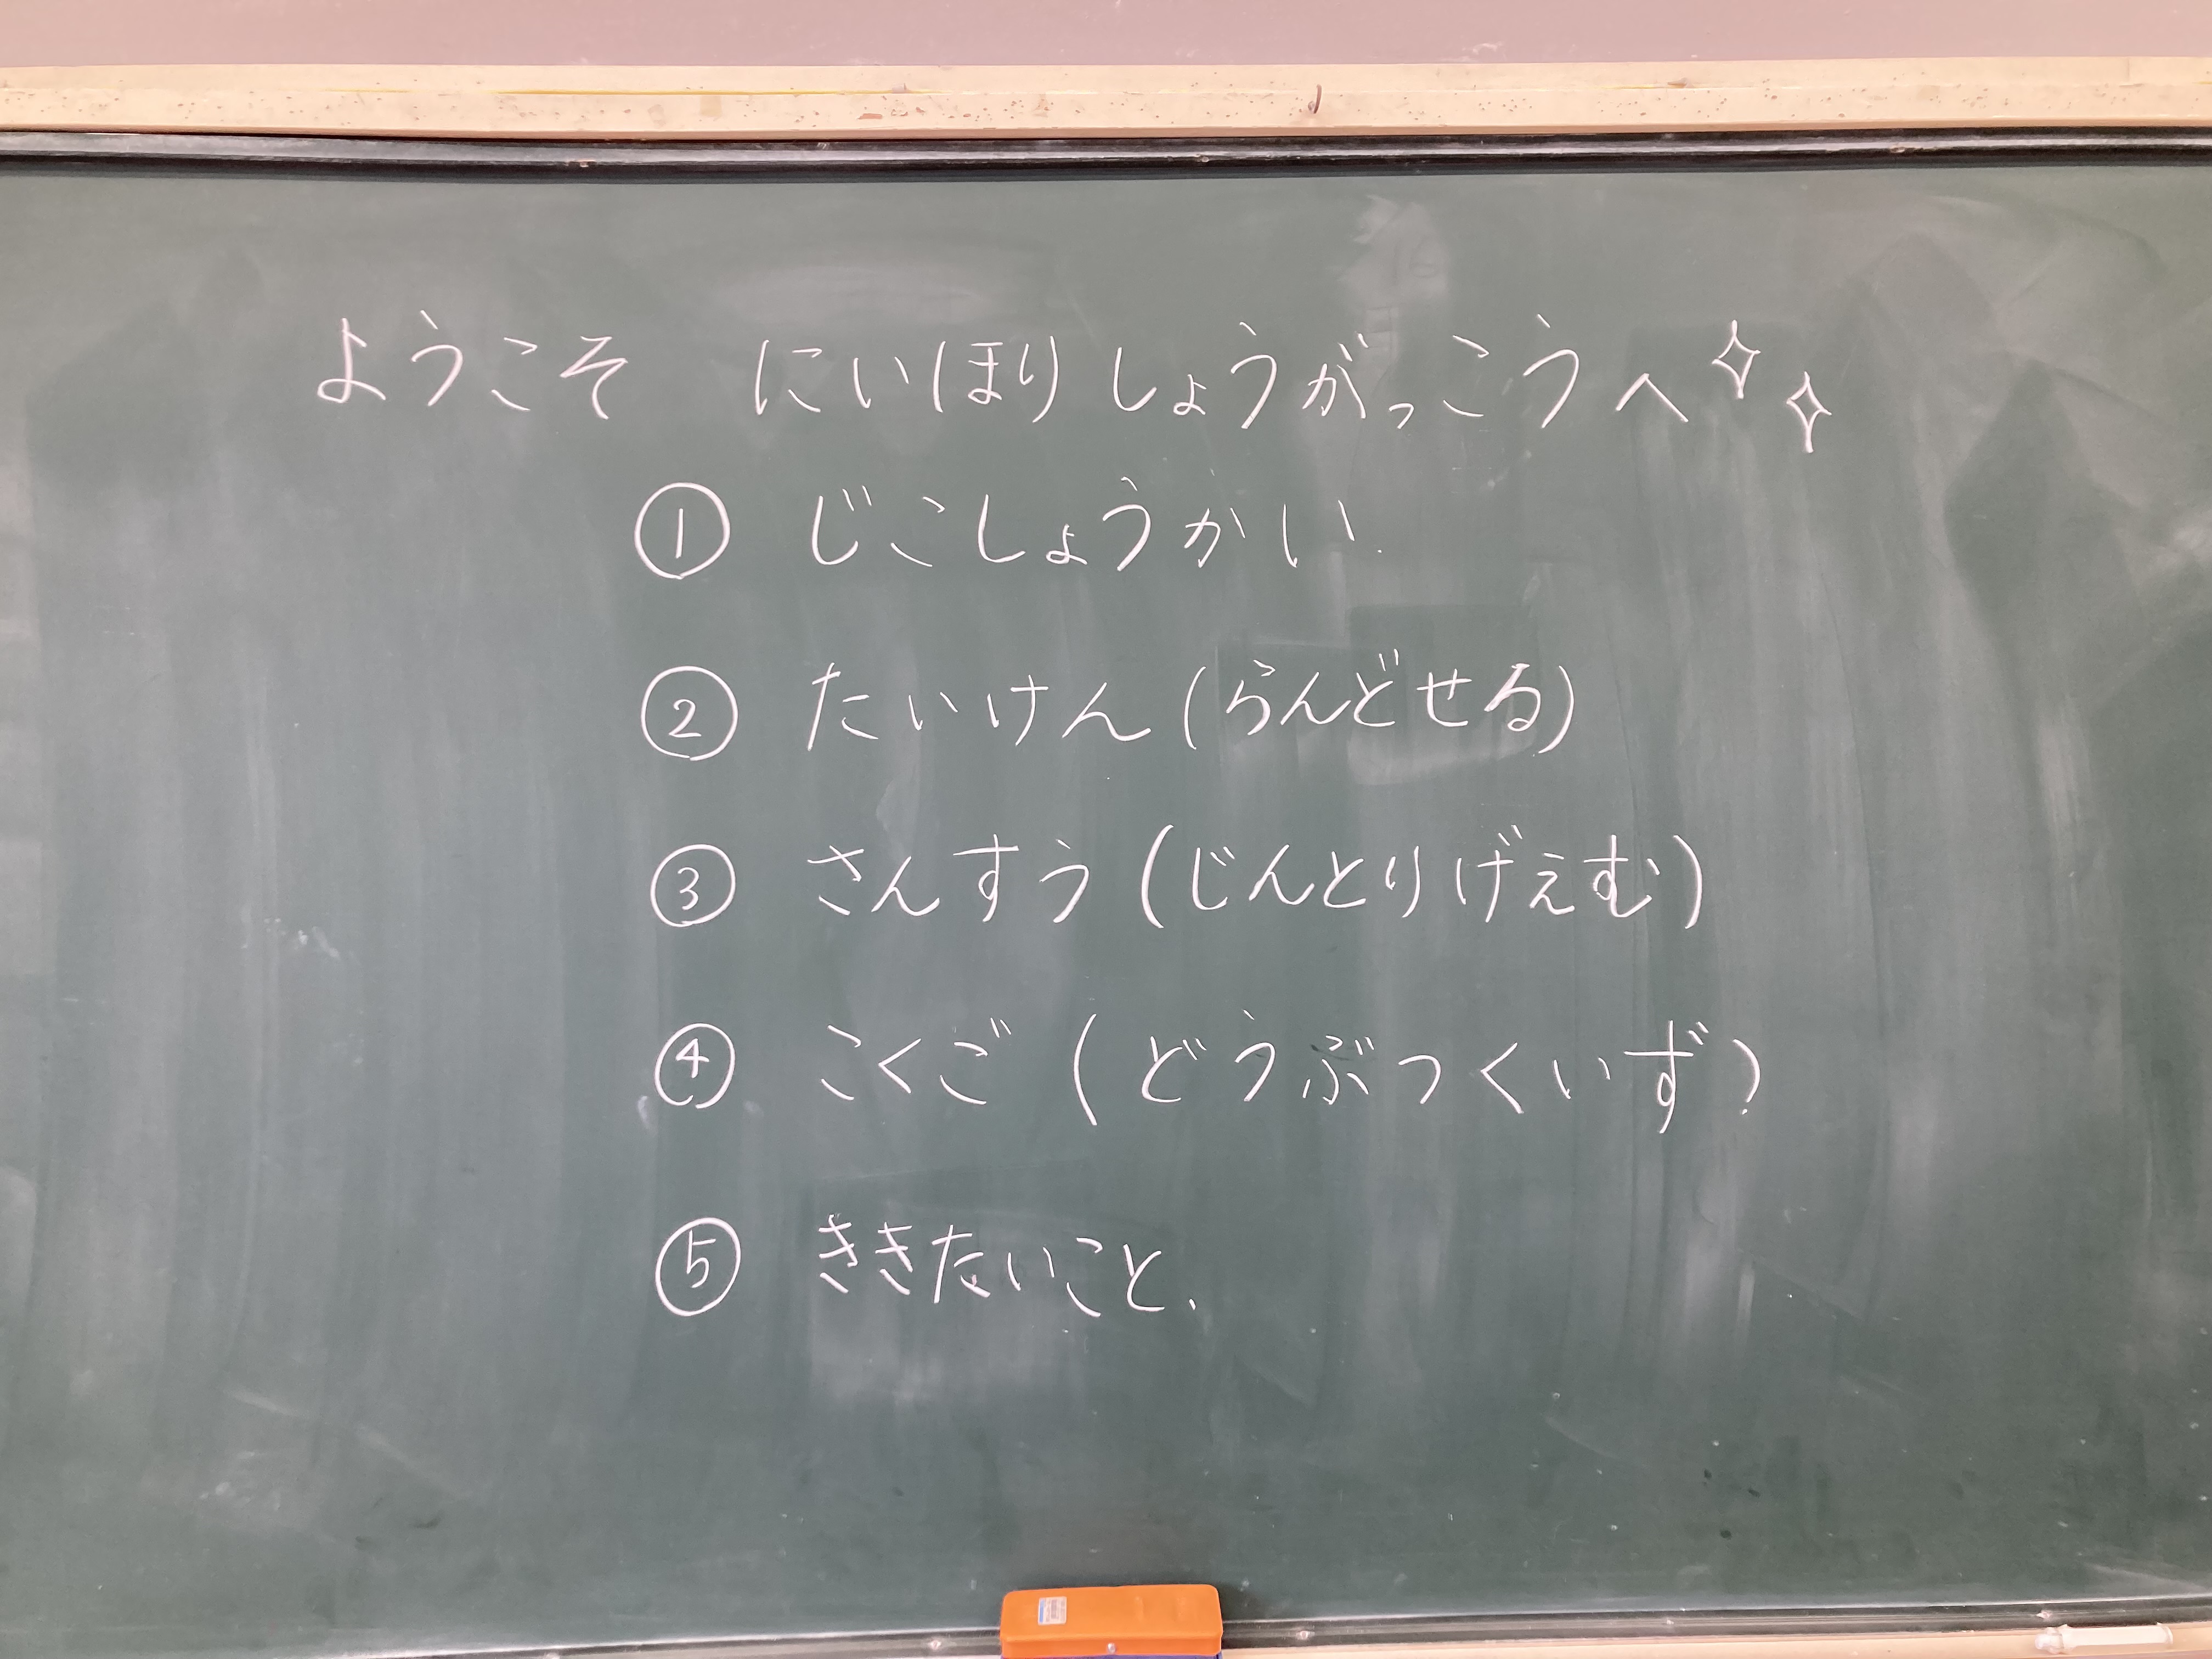 ようこそ にいほりしょうがっこうへ
① じこしょうかい
② たいけん(らんどせる)
③ さんすう(じんとりげえむ)
④ こくご(どうぶつくいず)
⑤ ききたいこと、